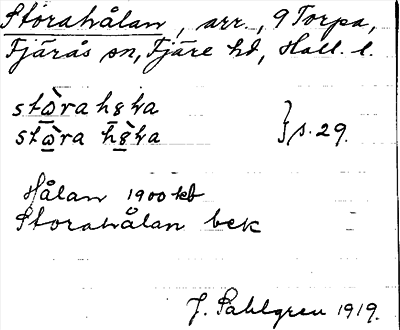 Storahålan, arr., 9 Torpa,
Fjärås sn, Fjäre hd, Hall. l.
stὼra hṣ̄ka
stὼra hṣ̀ka } s. 29.
Hålan 1900 kb
Storahålan bek
J. Sahlgren 1919.